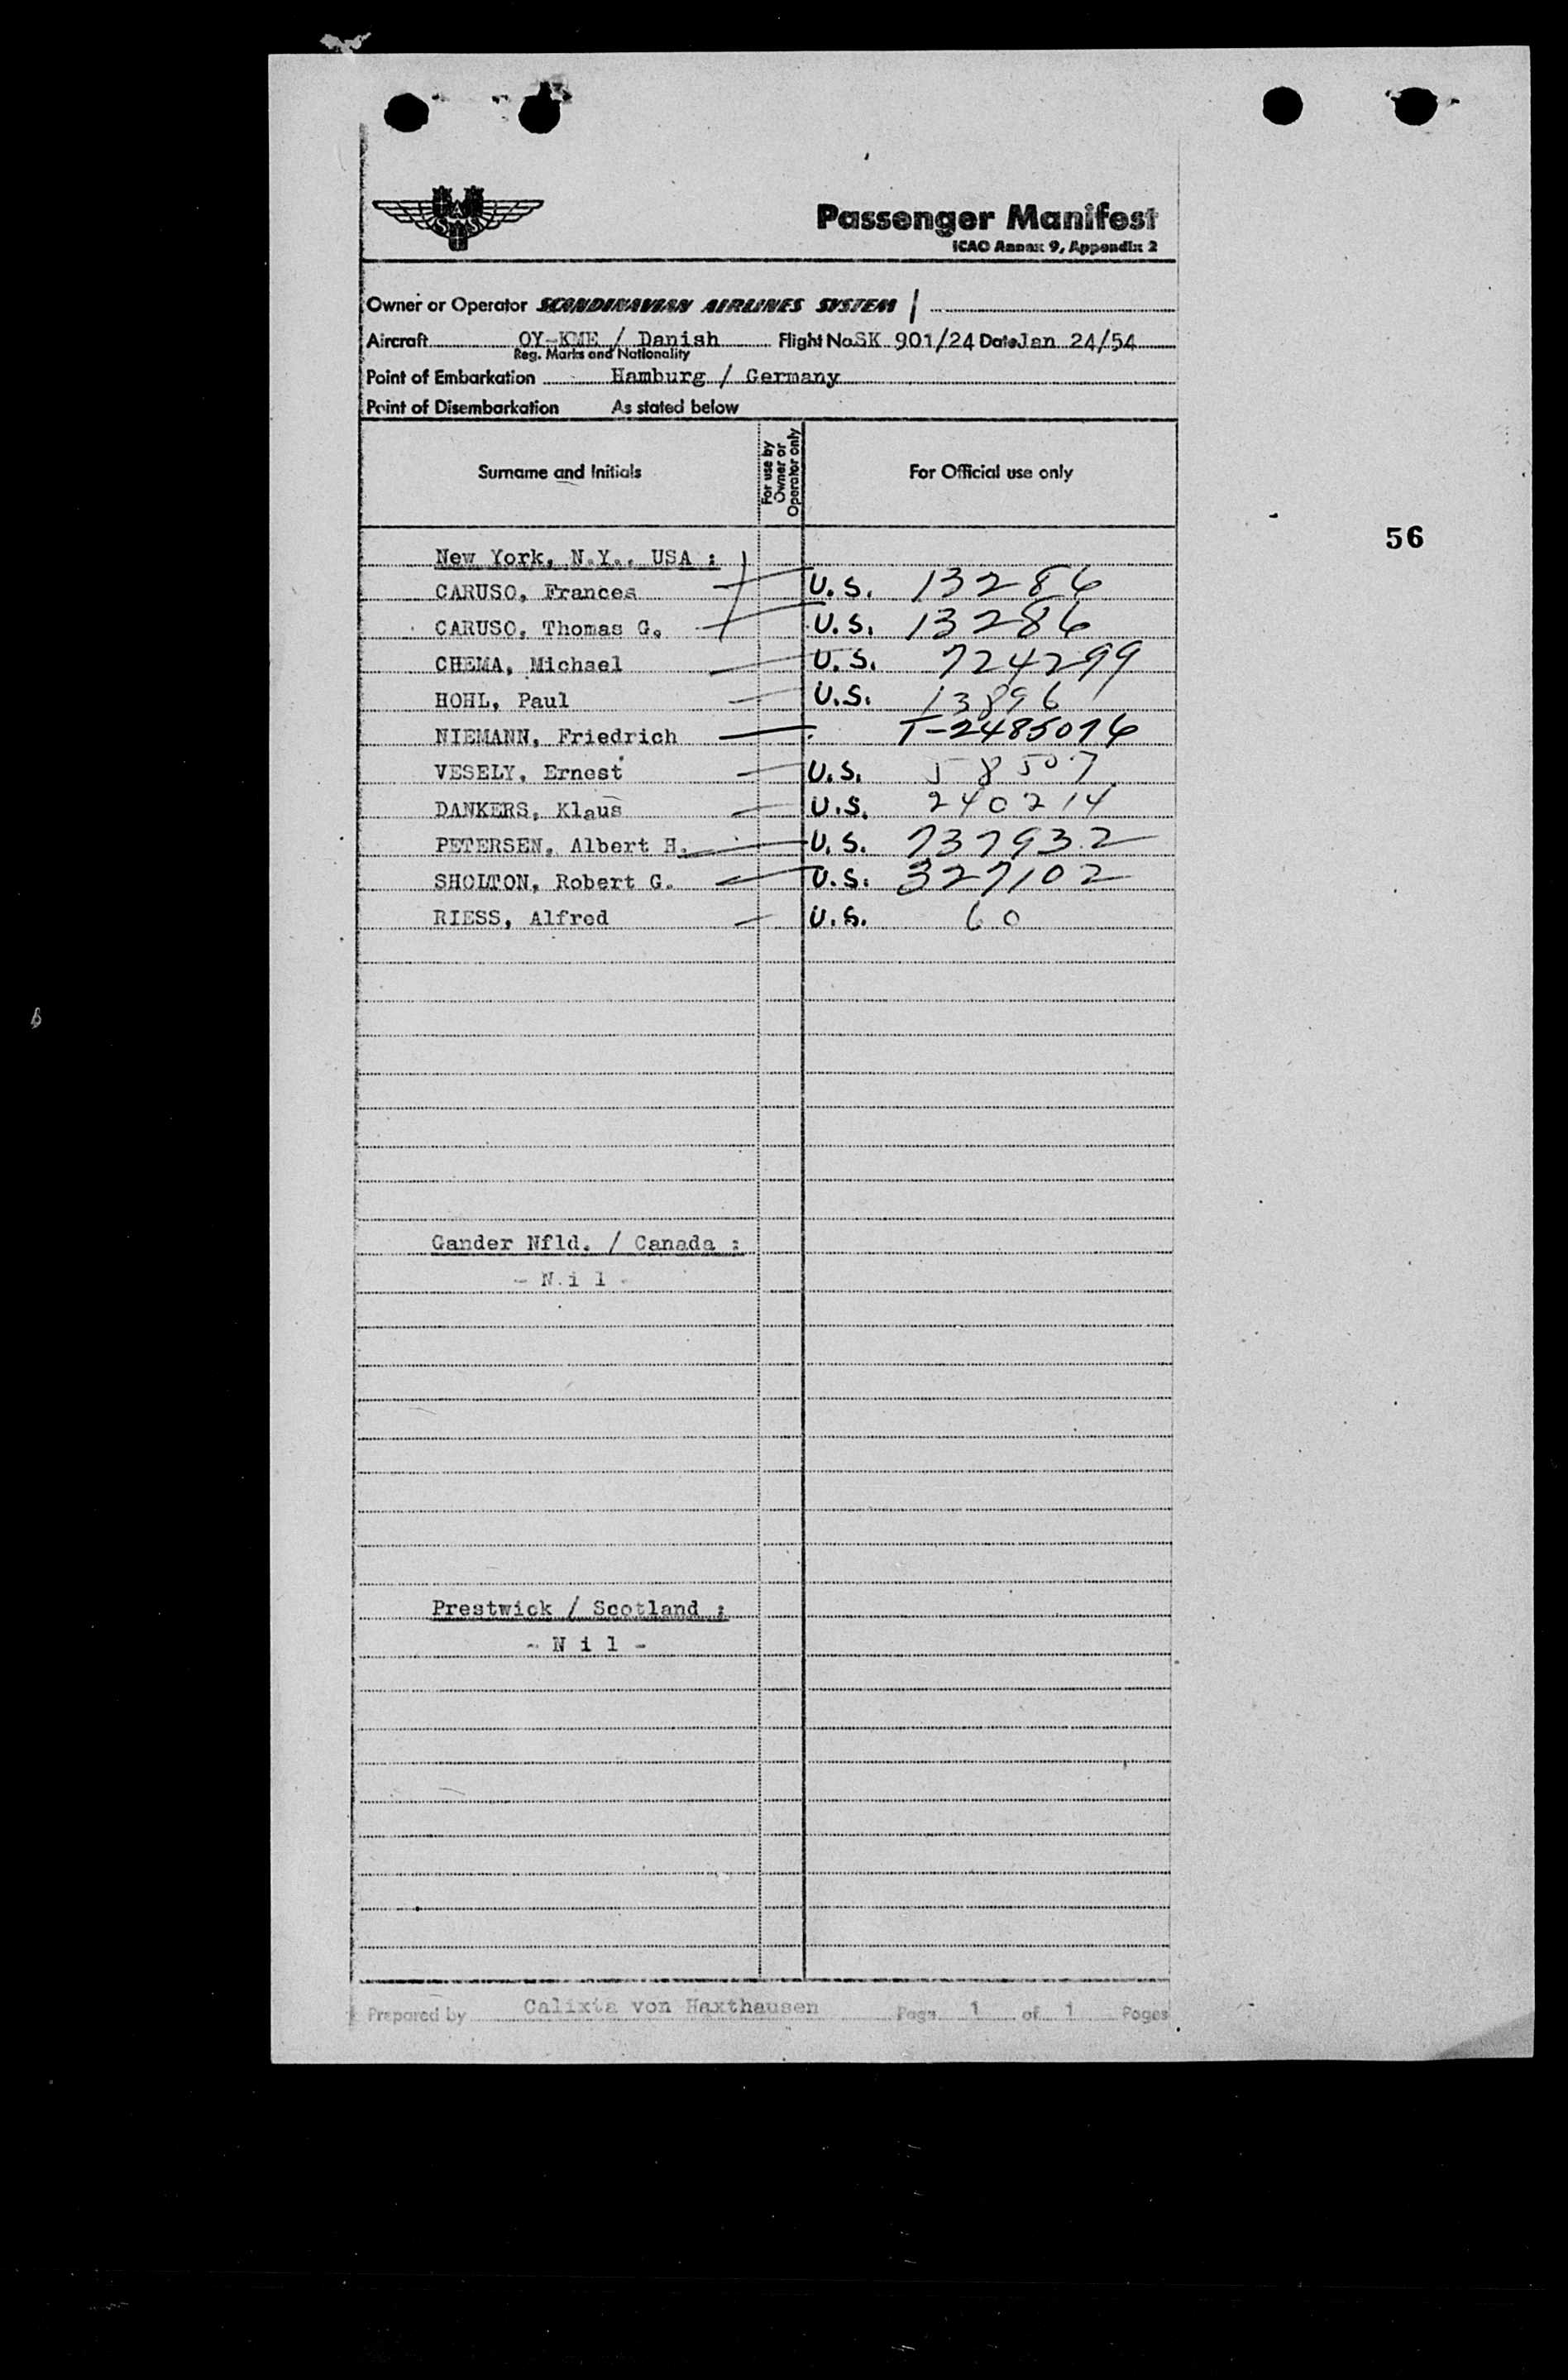 SAS
Passenger Manifest
ICAO Annex 9, Appendix 2
Owner or Operator SCANDINAVIAN AIRLINES SYSTEM /
Aircraft OY-KME / Danish Flight No. SK 901/24 Date Jan 24/54
Reg. Marks and Nationality
Point of Embarkation Hamburg / Germany
Point of Disembarkation As stated below
Surname and Initials For use by Owner or Operator only For Official use only
56
New York, N.Y., USA :
CARUSO, Frances U.S. 13286
CARUSO, Thomas G. U.S. 13286
CHEMA, Michael U.S. 724299
HOHL, Paul U.S. 13896
NIEMANN, Friedrich T-2485076
VESELY, Ernest U.S. 58507
DANKERS, Klaus U.S. 240214
PETERSEN, Albert H. U.S. 737932
SHOLTON, Robert G. U.S. 327102
RIESS, Alfred U.S. 60
Gander Nfld. / Canada :
- N i l -
Prestwick / Scotland :
- N i l -
Prepared by Calixta von Haxthausen Page 1 of 1 Pages